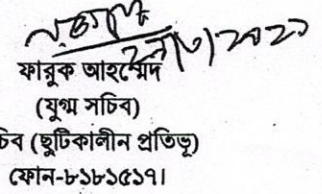 ফারুক আহম্মেদ
(যুগ্ম সচিব)
চিব (ছুটিকালীন প্রতিভূ)
ফোন-৮১৮১৫১৭।